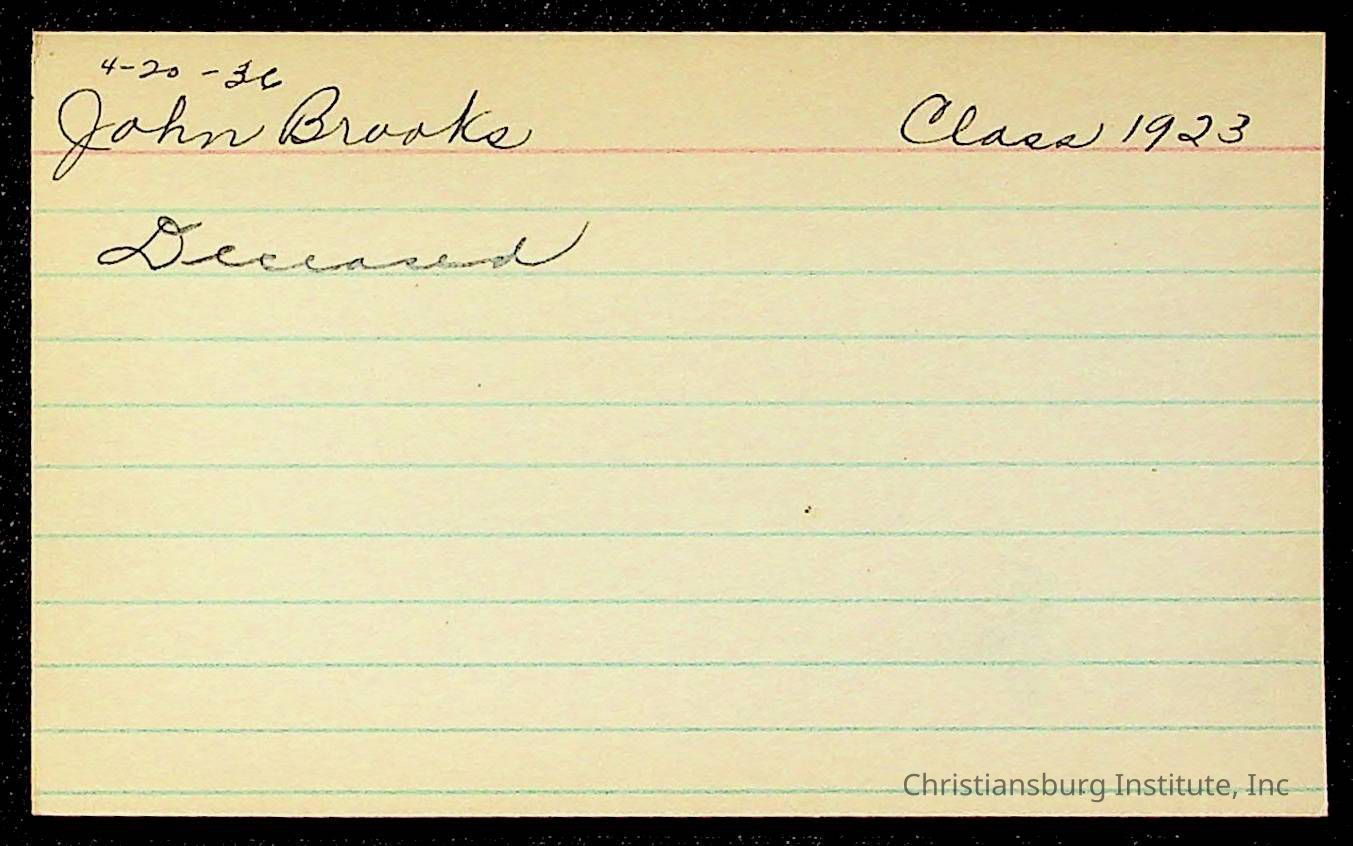 4-20-36
John Brooks Class 1923
Deceased
Christiansburg Institute, Inc